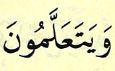 وَيَتَعَلَّمُونَ